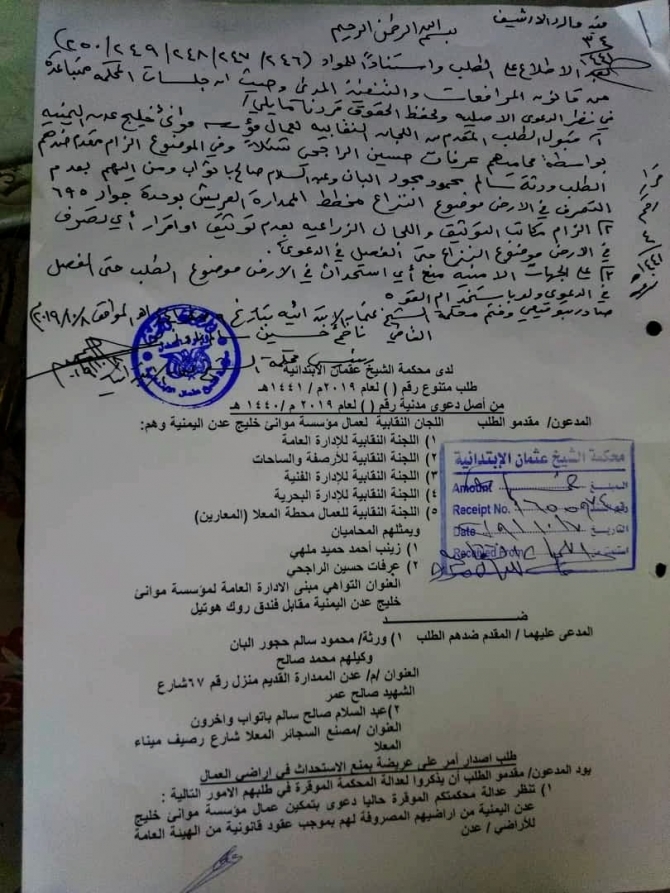 بسم الله الرحمن الرحيم
بعد الاطلاع على الطلب واستناداً للمواد (٢٤٦/ ٢٤٧/ ٢٤٨/ ٢٤٩/ ٢٥٠)
من قانون المرافعات والتنفيذ المدني وحيث ان جلسات المحكمة متباعدة
في نظر الدعوى الاصلية ولحفظ الحقوق قررنا مايلي/
قبول الطلب المقدم من اللجان النقابية لعمال مؤسسة موانئ خليج عدن اليمنية
بواسطة محاميهم عرفات حسين الراجحي شكلاً وفي الموضوع الزام المقدم ضدهم
الطلب ورثة سالم محمود حجور البان وعبدالسلام صالح باتواب ومن إليهم بعدم
التصرف في الارض موضوع النزاع مخطط الممدارة العريش بوحدة جوار ٦٩٥
٢) الزام مكاتب التوثيق واللجان الزراعية بعدم توثيق او اقرار أي تصرف
في الارض موضوع النزاع حتى الفصل في الدعوى.
٣) على الجهات الامنية منع أي استحداث في الارض موضوع الطلب حتى الفصل
في الدعوى
لدى محكمة الشيخ عثمان الابتدائية
طلب متنوع رقم ( ) لعام ٢٠١٩م / ١٤٤١هـ
من أصل دعوى مدنية رقم ( ) لعام ٢٠١٩ م / ١٤٤٠ هـ
المدعون/ مقدمو الطلب اللجان النقابية لعمال مؤسسة موانئ خليج عدن اليمنية وهم:
١) اللجنة النقابية للإدارة العامة
٢) اللجنة النقابية للأرصفة والساحات
٣) اللجنة النقابية للإدارة الفنية
٤) اللجنة النقابية للإدارة البحرية
٥) اللجنة النقابية للعمال محطة المعلا (المعارين)
ويمثلهم المحاميان
١) زينب أحمد حميد ملهي
٢) عرفات حسين الراجحي
العنوان التواهي مبنى الادارة العامة لمؤسسة موانئ
خليج عدن اليمنية مقابل فندق روك هوتيل
محكمة الشيخ عثمان الإبتدائية
المبلغ Amount
رقم Receipt No.
التاريخ Date
Received From
ضــــــــد
المدعى عليهما / المقدم ضدهم الطلب ١) ورثة/ محمود سالم حجور البان
وكيلهم محمد صالح
العنوان /م/ عدن الممدارة القديم منزل رقم ٦٧شارع
الشهيد صالح عمر
٢)عبد السلام صالح سالم باتواب واخرون
العنوان /مصنع السجائر المعلا شارع رصيف ميناء
المعلا
طلب اصدار أمر على عريضة بمنع الاستحداث في اراضي العمال
يود المدعون/ مقدمو الطلب أن يذكروا لعدالة المحكمة الموقرة في طلبهم الامور التالية :
١) تنظر عدالة محكمتكم الموقرة حاليا دعوى بتمكين عمال مؤسسة موانئ خليج
عدن اليمنية من اراضيهم المصروفة لهم بموجب عقود قانونية من الهيئة العامة
للأراضي / عدن